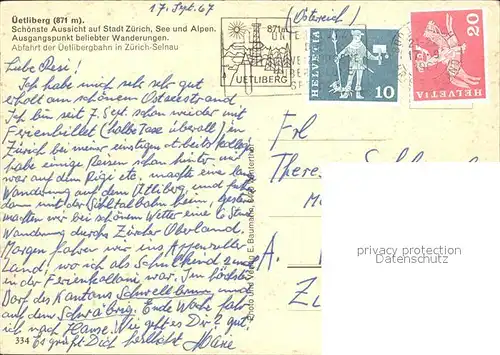 Üetliberg (871 m).
Schönste Aussicht auf Stadt Zürich, See und Alpen.
Ausgangspunkt beliebter Wanderungen.
Abfahrt der Uetlibergbahn in Zürich-Selnau
17. Sept. 67
(Österreich)
871m
UETLIBERG
HELVETIA
10
HELVETIA
20
Liebe Resi!
Ich habe mich sehr sehr gut
erholt am schönen Ostseestrand
Ich bin seit 7. Sept. schon wieder mit
Ferienbillet (halbe Taxe überall) in
Zürich bei meiner einstigen
habe einige Reisen schon hinter mir
war auf dem Rigi etc, machte eine
Wanderung auf dem Ütliberg, und fuhr
dann mit der Sihltalbahn heim, gestern
machten wir bei schönem Wetter eine 6 Std
Wanderung durchs Zürcher Oberland.
Morgen fahren wir ins Appenzeller
Land! wo ich als Schulkind
in der Ferienkolonie war. Im höchsten
Dorf des Kantons Schwellbrunn und
auf dem Schwäbrig. Ende Woche fahr
ich nach Hause. Wie geht es Dir? gut,
Es grüßt Dich herzlichst
334
Photo und Verlag E. Baumann,
Frl
There
A.
privacy protection
www.oldthing.com